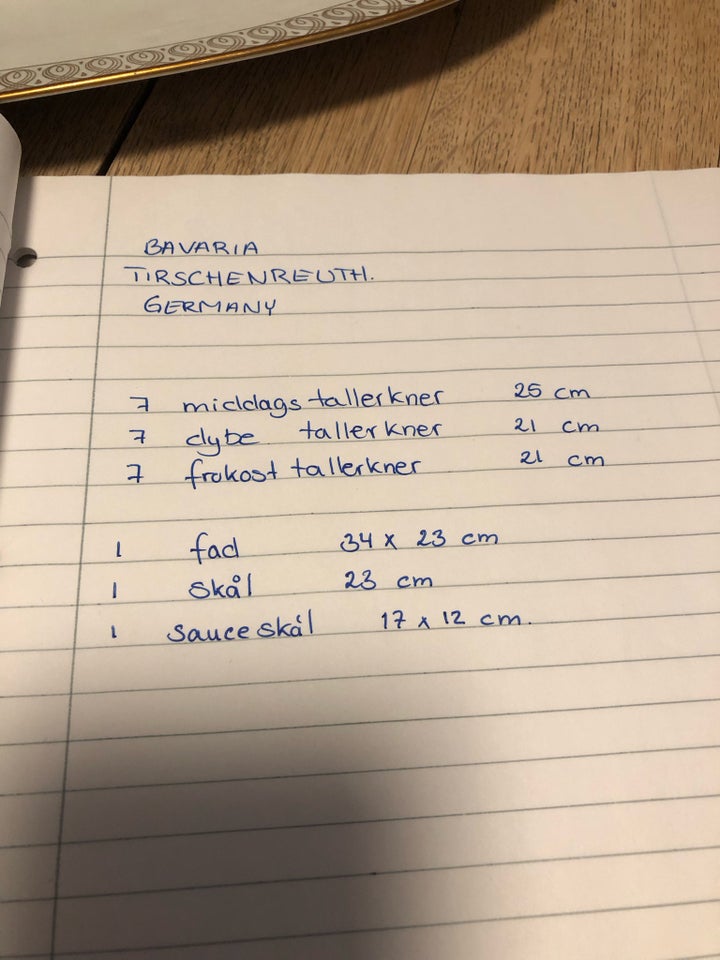 BAVARIA
TIRSCHENREUTH.
GERMANY
7 middags tallerkner 25 cm
7 dybe tallerkner 21 cm
7 frokost tallerkner 21 cm
1 fad 34 x 23 cm
1 skål 23 cm
1 sauce skål 17 x 12 cm.